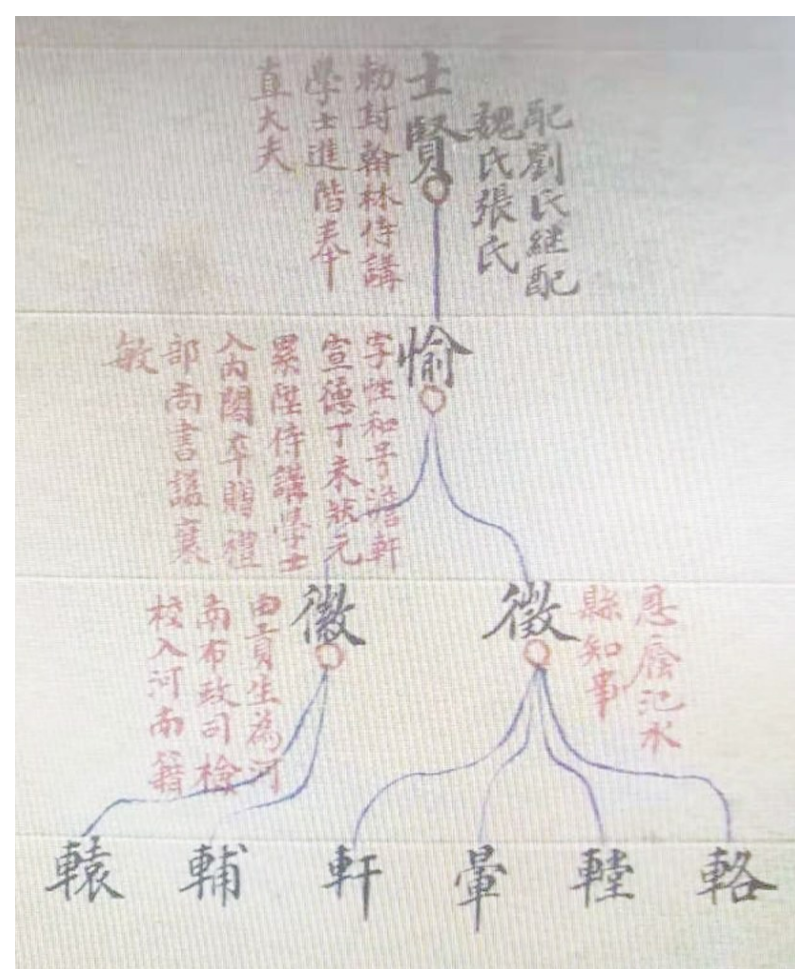 配劉氏繼配
魏氏張氏
士賢
勅封翰林侍講
學士進階奉
直大夫
愉
字性和号澹軒
宣德丁未狀元
累陞侍講學士
入內閣卒贈禮
部尚書諡襄
敏
恩廕汜水
縣知事
徵
徽
由貢生為河
南布政司檢
校入河南籍
輅
𨍴
暈
軒
輔
轅